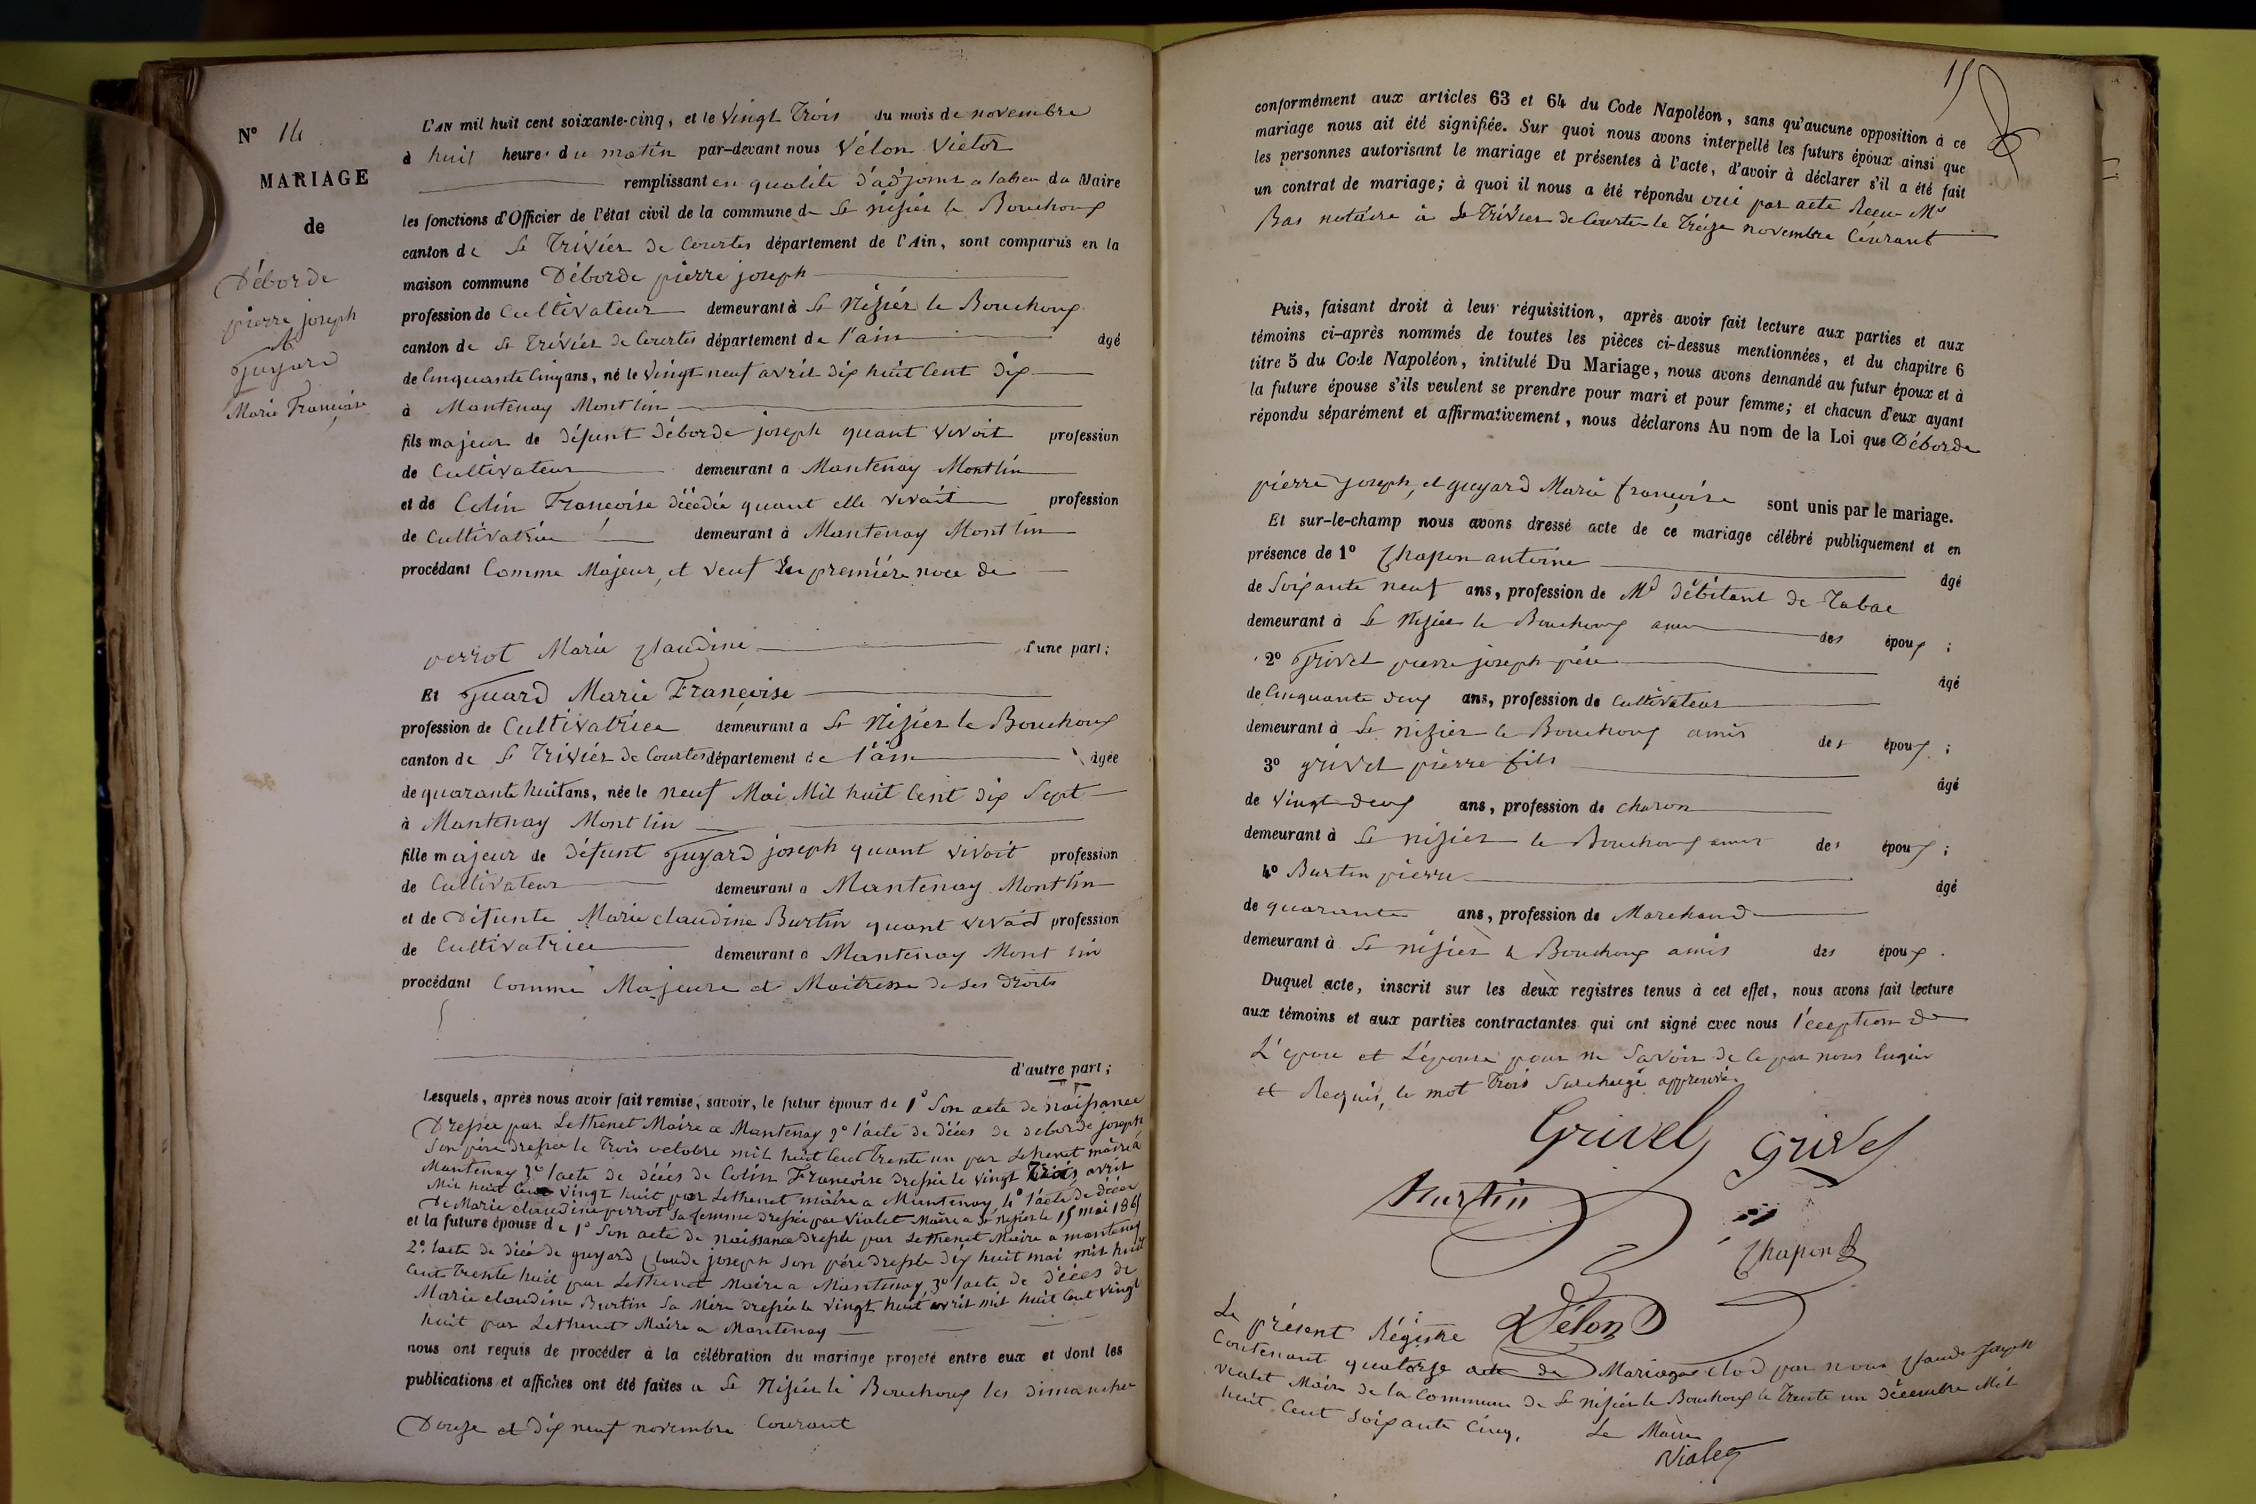 N° 14
MARIAGE
de
Déborde
pierre joseph
et
Guyard
Marie Françoise
L'AN mil huit cent soixante-cinq, et le Vingt Trois du mois de novembre
à huit heure du matin par-devant nous Vélon Victor
remplissant en qualité d'adjoint a labsen du Maire
les fonctions d'Officier de l'état civil de la commune de St nisier le Bouchoux
canton de St Trivier de Courtes département de l'Ain, sont comparus en la
maison commune Déborde pierre joseph
profession de Cultivateur demeurant à St Nizier le Bouchoux
canton de St Trivier de Courtes département de l'ain âgé
de Cinquante Cinq ans, né le Vingt neuf avril dix huit Cent Dix
à Mantenay Montlin
fils majeur de défunt Déborde joseph quant vivoit profession
de Cultivateur demeurant a Mantenay Montlin
et de Colin Françoise décédée quant elle vivait profession
de Cultivatrice demeurant à Mantenay Montlin
procédant Comme Majeur, et veuf en première noce de
perrot Marie Claudine d'une part;
Et Guard Marie Françoise
profession de Cultivatrice demeurant a St Nizier le Bouchoux
canton de St Trivier de Courtes département de l'ain âgée
de quarante huit ans, née le neuf Mai Mil huit Cent dix Sept
à Mantenay Montlin
fille majeur de défunt Guyard joseph quant vivoit profession
de Cultivateur demeurant a Mantenay Montlin
et de Défunte Marie claudine Burtin quant vivait profession
de Cultivatrice demeurant a Mantenay Mont lin
procédant Comme Majeure et Maitresse de ses droits
d'autre part;
Lesquels, après nous avoir fait remise, savoir, le futur époux de 1° Son acte de naissance
Dressée par Lethenet Maire a Mantenay 2° l'acte de décès de deborde joseph
Son père dressée le Trois octobre mil huit Cent Trente un par Lethenet maire à
Mantenay 3° lacte de décés de Colin Françoise dressée le vingt Trois avril
Mil huit Cent vingt huit par Lethenet maire a Mantenay 4° l'acte de décès
De Marie claudine perrot Sa femme dressée par Vialet Maire a St nisier le 15 mai 1865
et la future épouse de 1° Son acte de naissance dressée par Lethenet Maire a mantenay
2° lacte de décé de guyard Claude joseph son père dressée dix huit mai mil huit
Cent Trente huit par Lethenet Maire a Mantenay, 3° lacte de décès de
Marie claudine Burtin Sa Mère dressée le Vingt huit avril mil huit Cent vingt
huit par Lethenet Maire a Mantenay
nous ont requis de procéder à la célébration du mariage projeté entre eux et dont les
publications et affiches ont été faites a St Nizier le Bouchoux les dimanches
Douze et Dix neuf novembre Courant
15
conformément aux articles 63 et 64 du Code Napoléon, sans qu'aucune opposition à ce
mariage nous ait été signifiée. Sur quoi nous avons interpellé les futurs époux ainsi que
les personnes autorisant le mariage et présentes à l'acte, d'avoir à déclarer s'il a été fait
un contrat de mariage; à quoi il nous a été répondu oui par acte Recu Me
Bas notaire à St Trivier de Courtes le Treize novembre Courant
Puis, faisant droit à leur réquisition, après avoir fait lecture aux parties et aux
témoins ci-après nommés de toutes les pièces ci-dessus mentionnées, et du chapitre 6
titre 5 du Code Napoléon, intitulé Du Mariage, nous avons demandé au futur époux et à
la future épouse s'ils veulent se prendre pour mari et pour femme; et chacun d'eux ayant
répondu séparément et affirmativement, nous déclarons Au nom de la Loi que Déborde
pierre joseph, et guyard Marie françoise sont unis par le mariage.
Et sur-le-champ nous avons dressé acte de ce mariage célébré publiquement et en
présence de 1° Chapon antoine âgé
de Soixante neuf ans, profession de Md débitant de Tabac
demeurant à St Nizier le Bouchoux ami des époux ;
2° Grivel pierre joseph père âgé
de Cinquante deux ans, profession de Cultivateur
demeurant à St nizier le Bouchoux amis des époux ;
3° grivel pierre fils âgé
de Vingt deux ans, profession de Charon
demeurant à St nizier le Bouchoux amis des époux ;
4° Burtin pierre âgé
de quarante ans, profession de Marchand
demeurant à St nizier le Bouchoux amis des époux .
Duquel acte, inscrit sur les deux registres tenus à cet effet, nous avons fait lecture
aux témoins et aux parties contractantes qui ont signé avec nous l'éception de
L'époux et L'épouse pour ne Savoir de ce par nous Enquis
et Requis, le mot Trois Surchargé approuvé.
Grivel Grivel
Burtin
Chapon
Vélon
Le présent Régistre
Contenant quatorze acte de Mariage clod par nous Claude Joseph
Vialet Maire de la Commune de St nizier le Bouchoux le Trente un décembre Mil
huit Cent Soixante Cinq. Le Maire
Vialet